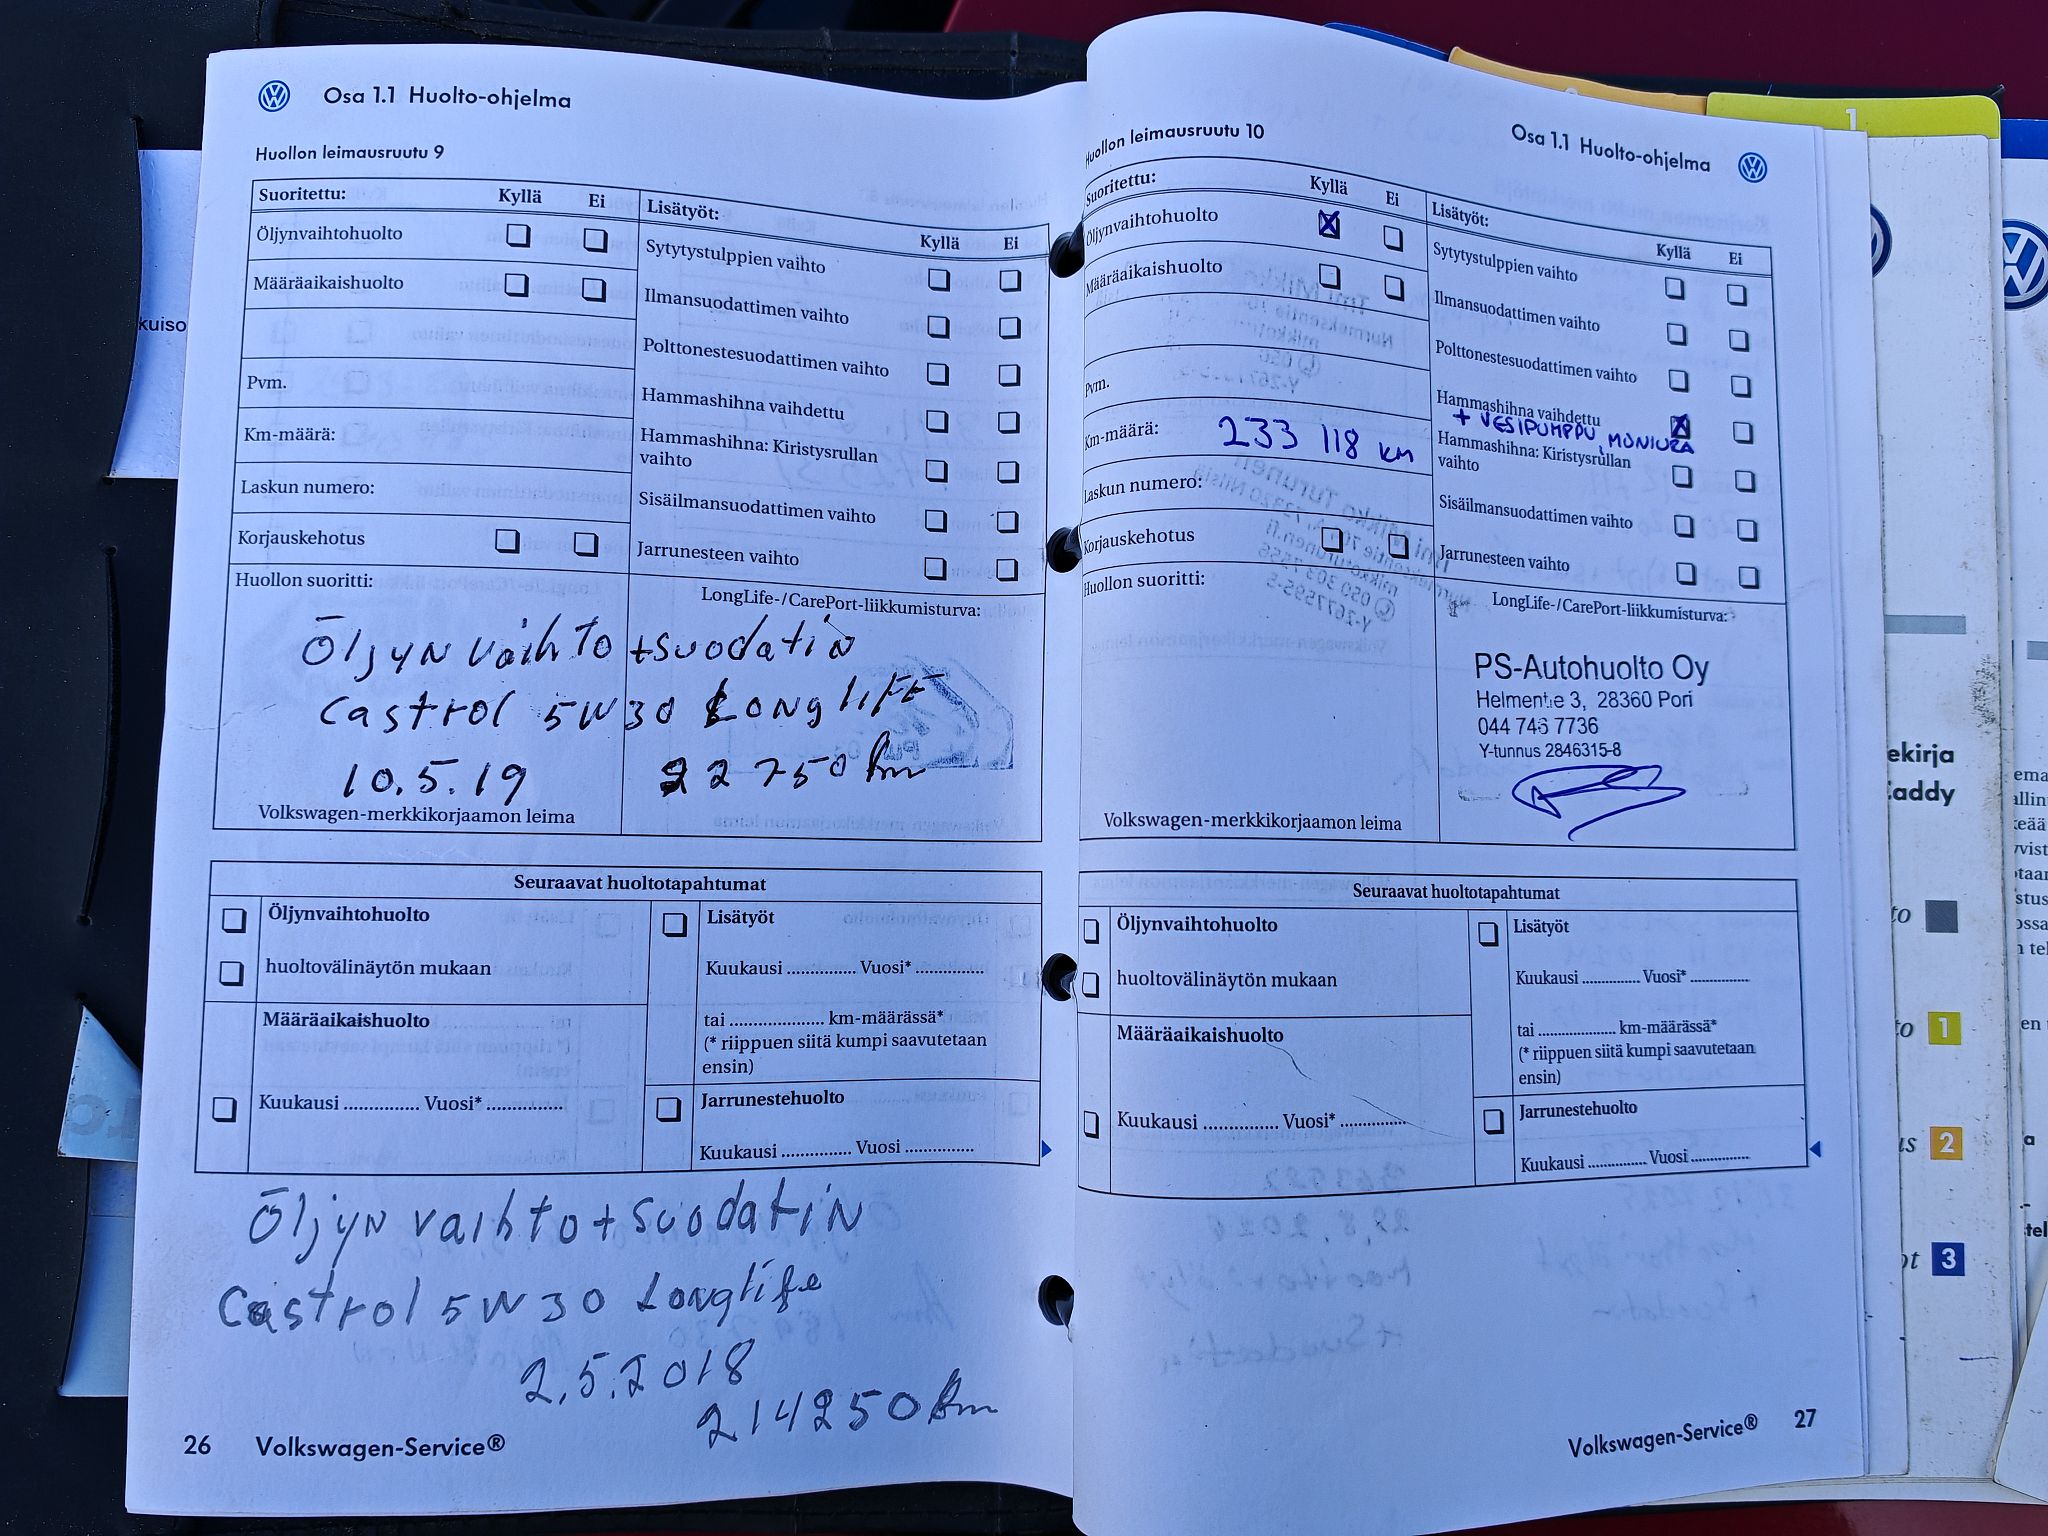 Osa 1.1 Huolto-ohjelma
Huollon leimausruutu 9
Suoritettu: Kyllä Ei
Öljynvaihtohuolto
Määräaikaishuolto
Pvm.
Km-määrä:
Laskun numero:
Korjauskehotus
Lisätyöt: Kyllä Ei
Sytytystulppien vaihto
Ilmansuodattimen vaihto
Polttonestesuodattimen vaihto
Hammashihna vaihdettu
Hammashihna: Kiristysrullan
vaihto
Sisäilmansuodattimen vaihto
Jarrunesteen vaihto
Huollon suoritti:
LongLife-/CarePort-liikkumisturva:
Öljyn vaihto + suodatin
Castrol 5W30 Longlife
10.5.19 22750 km
Volkswagen-merkkikorjaamon leima
Seuraavat huoltotapahtumat
Öljynvaihtohuolto
huoltovälinäytön mukaan
Määräaikaishuolto
Kuukausi ............... Vuosi* ...............
Lisätyöt
Kuukausi .............. Vuosi* ..............
tai .................... km-määrässä*
(* riippuen siitä kumpi saavutetaan
ensin)
Jarrunestehuolto
Kuukausi .............. Vuosi ..............
Öljyn vaihto + suodatin
Castrol 5W30 Longlife
2.5.2018
214250 km
26 Volkswagen-Service®
Huollon leimausruutu 10
Osa 1.1 Huolto-ohjelma
Suoritettu: Kyllä Ei
Öljynvaihtohuolto
Määräaikaishuolto
Pvm.
Km-määrä: 233 118 KM
Laskun numero:
Korjauskehotus
Lisätyöt: Kyllä Ei
Sytytystulppien vaihto
Ilmansuodattimen vaihto
Polttonestesuodattimen vaihto
Hammashihna vaihdettu
+ VESIPUMPPU, MONIURA
Hammashihna: Kiristysrullan
vaihto
Sisäilmansuodattimen vaihto
Jarrunesteen vaihto
Huollon suoritti:
LongLife-/CarePort-liikkumisturva:
PS-Autohuolto Oy
Helmentie 3, 28360 Pori
044 746 7736
Y-tunnus 2846315-8
Volkswagen-merkkikorjaamon leima
Seuraavat huoltotapahtumat
Öljynvaihtohuolto
huoltovälinäytön mukaan
Määräaikaishuolto
Kuukausi ............... Vuosi* ..............
Lisätyöt
Kuukausi .............. Vuosi* ..............
tai .................. km-määrässä*
(* riippuen siitä kumpi saavutetaan
ensin)
Jarrunestehuolto
Kuukausi .............. Vuosi ..............
Volkswagen-Service® 27
kuiso
1
ekirja
addy
1
2
3